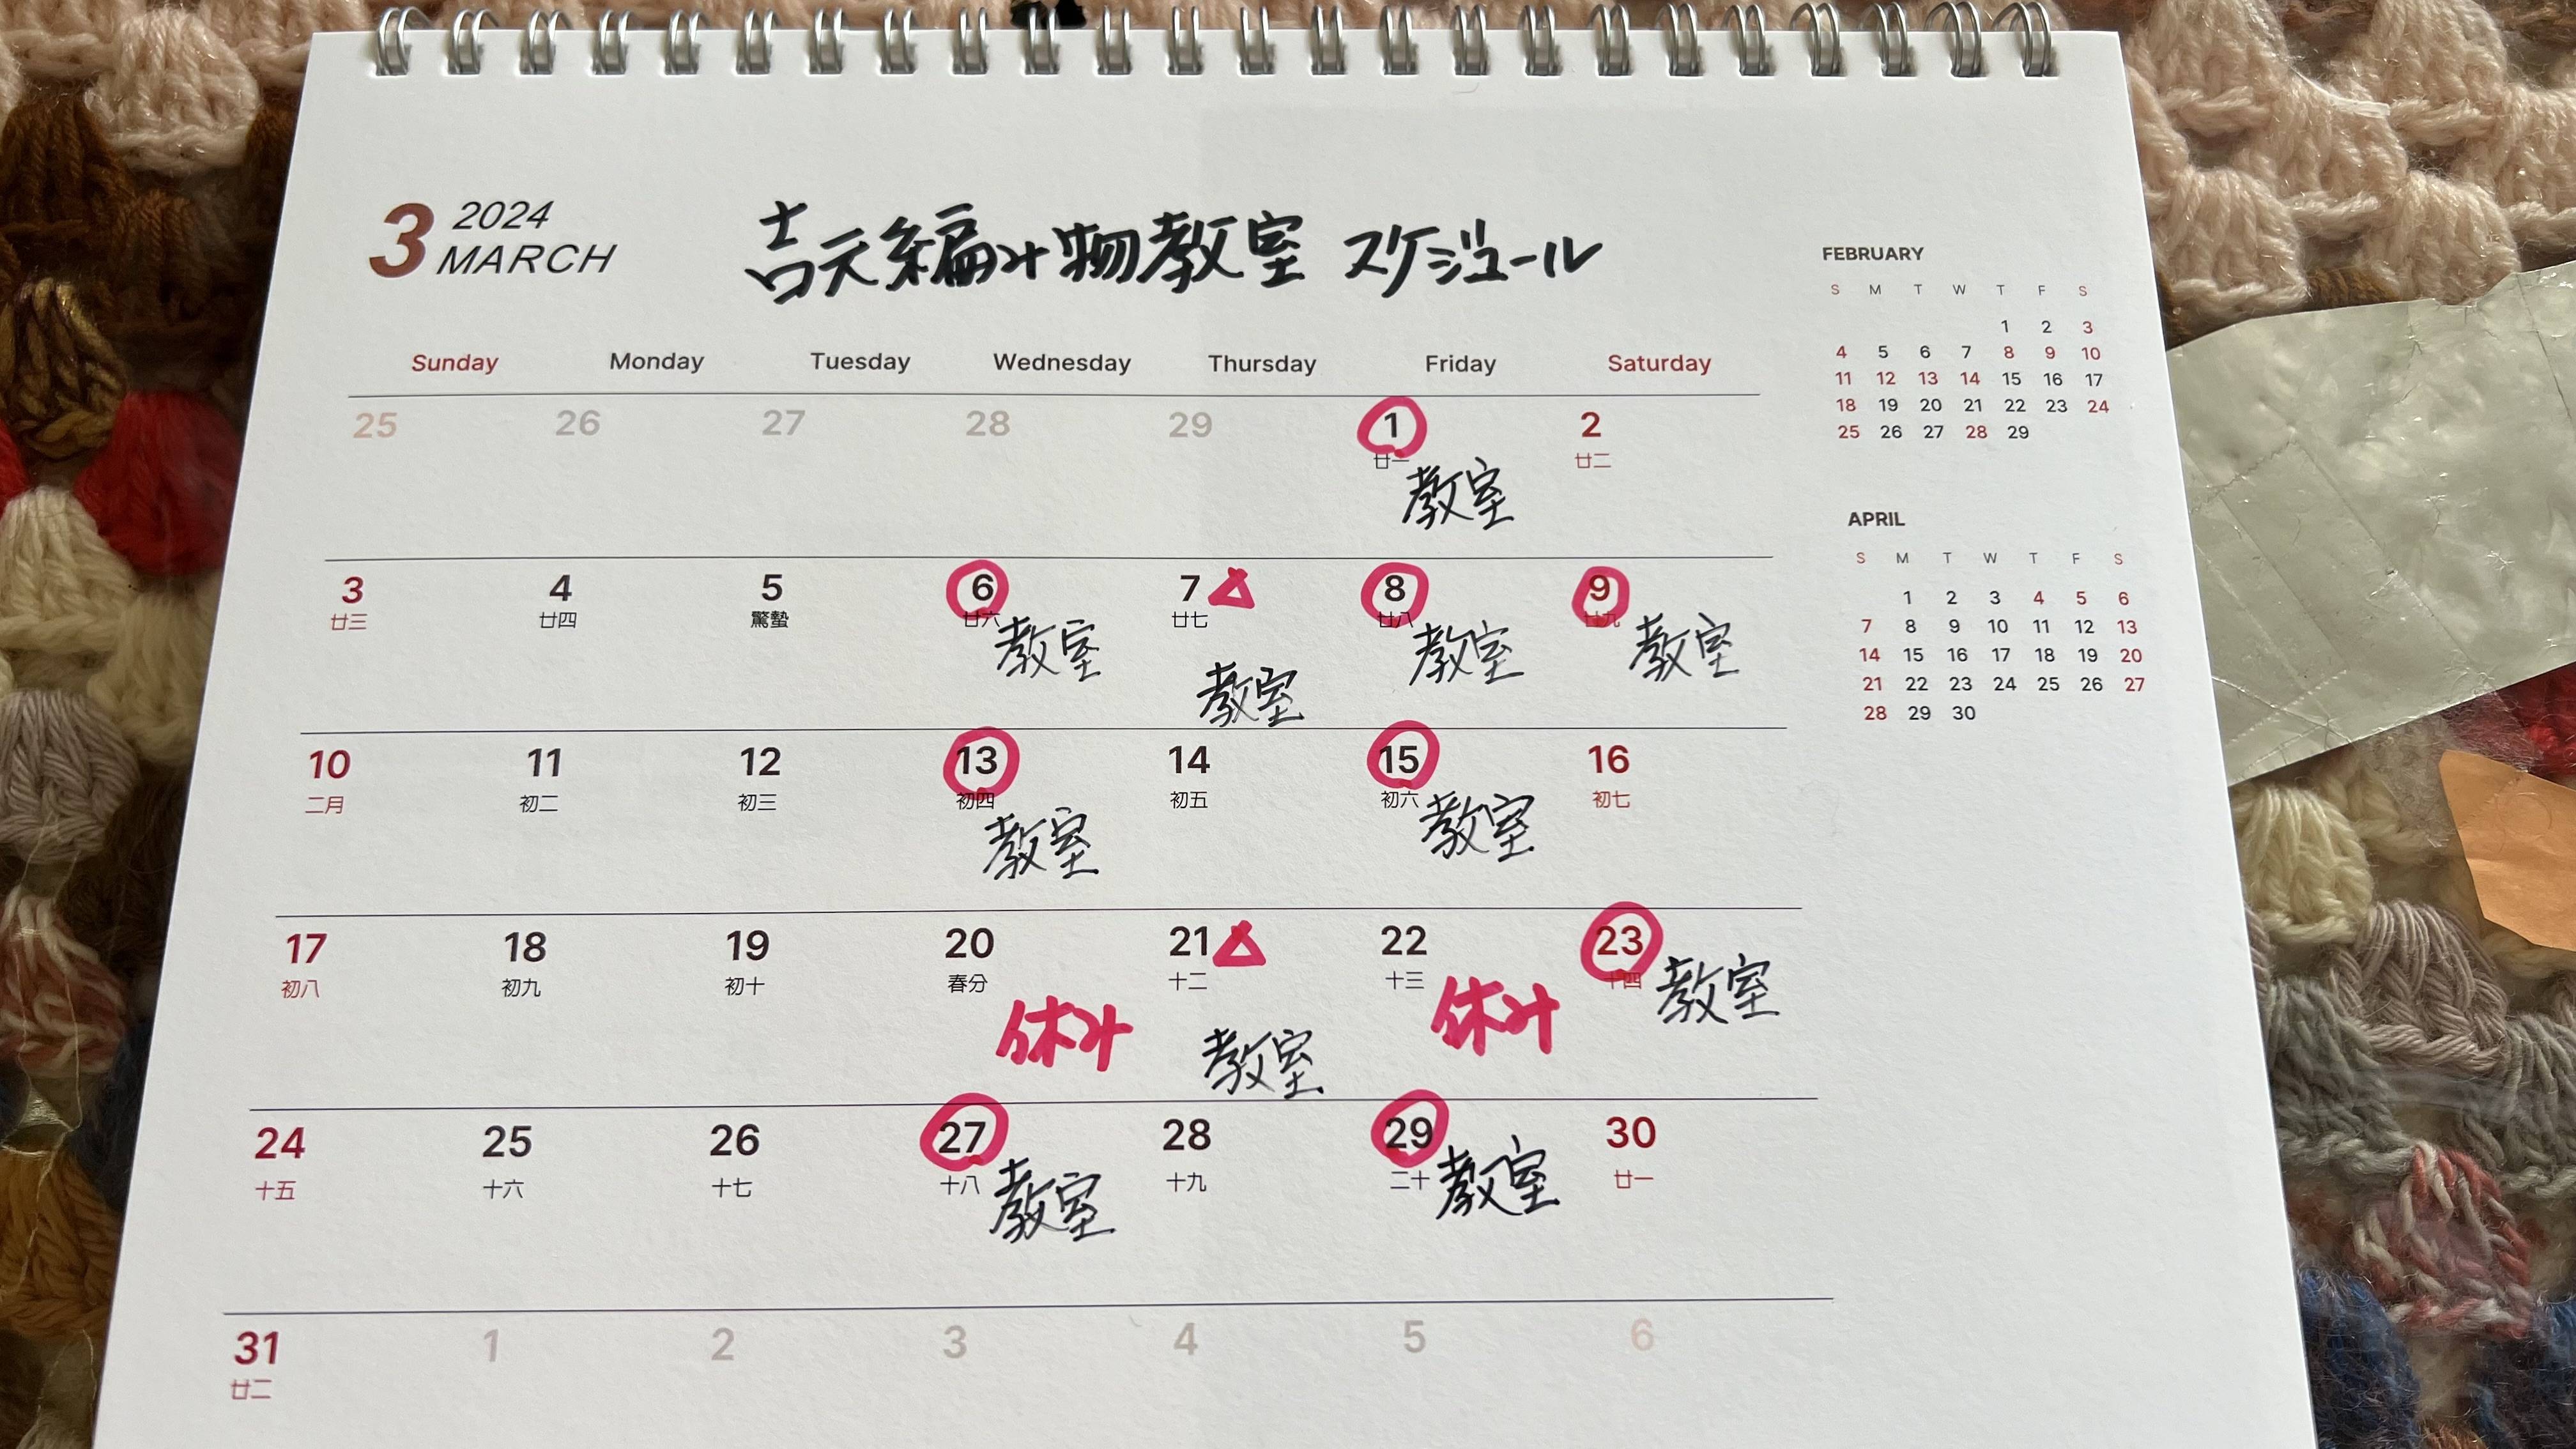 3 2024
MARCH
吉元編み物教室 スケジュール
Sunday Monday Tuesday Wednesday Thursday Friday Saturday
25 26 27 28 29 1 2
廿一 廿二
教室
3 4 5 6 7 △ 8 9
廿三 廿四 驚蟄 廿六 廿七 廿八 廿九
教室 教室 教室 教室
10 11 12 13 14 15 16
二月 初二 初三 初四 初五 初六 初七
教室 教室
17 18 19 20 21 △ 22 23
初八 初九 初十 春分 十二 十三 十四
休み 教室 休み 教室
24 25 26 27 28 29 30
十五 十六 十七 十八 十九 二十 廿一
教室 教室
31 1 2 3 4 5 6
廿二
FEBRUARY
S M T W T F S
1 2 3
4 5 6 7 8 9 10
11 12 13 14 15 16 17
18 19 20 21 22 23 24
25 26 27 28 29
APRIL
S M T W T F S
1 2 3 4 5 6
7 8 9 10 11 12 13
14 15 16 17 18 19 20
21 22 23 24 25 26 27
28 29 30